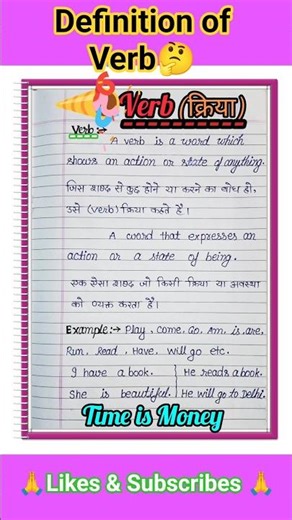 Definition of
Verb🤔
Verb (क्रिया)
Verb :→
A verb is a word which
shows an action or state of anything.
जिस शब्द से कुछ होने या करने का बोध हो,
उसे (verb) क्रिया कहते हैं।
A word that expresses an
action or a state of being.
एक ऐसा शब्द जो किसी क्रिया या अवस्था
को व्यक्त करता है।
Example:→ Play, Come, Go, Am, is, are,
Run, Read, Have, Will go etc.
I have a book. | He reads a book.
She is beautiful. | He will go to Delhi.
Time is Money
🙏 Likes & Subscribes 🙏